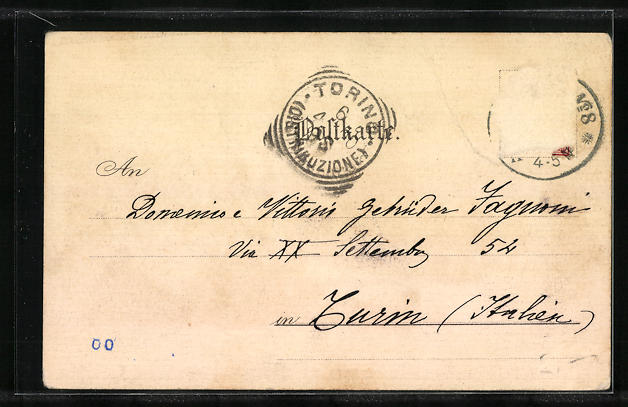 TORINO
(DISTRIBUZIONE)
Postkarte.
№8 *
4-5
An
Domenico e Vittorio Gebrüder Fagnoni
Via XX Settembre 52
in Turin (Italien)
00